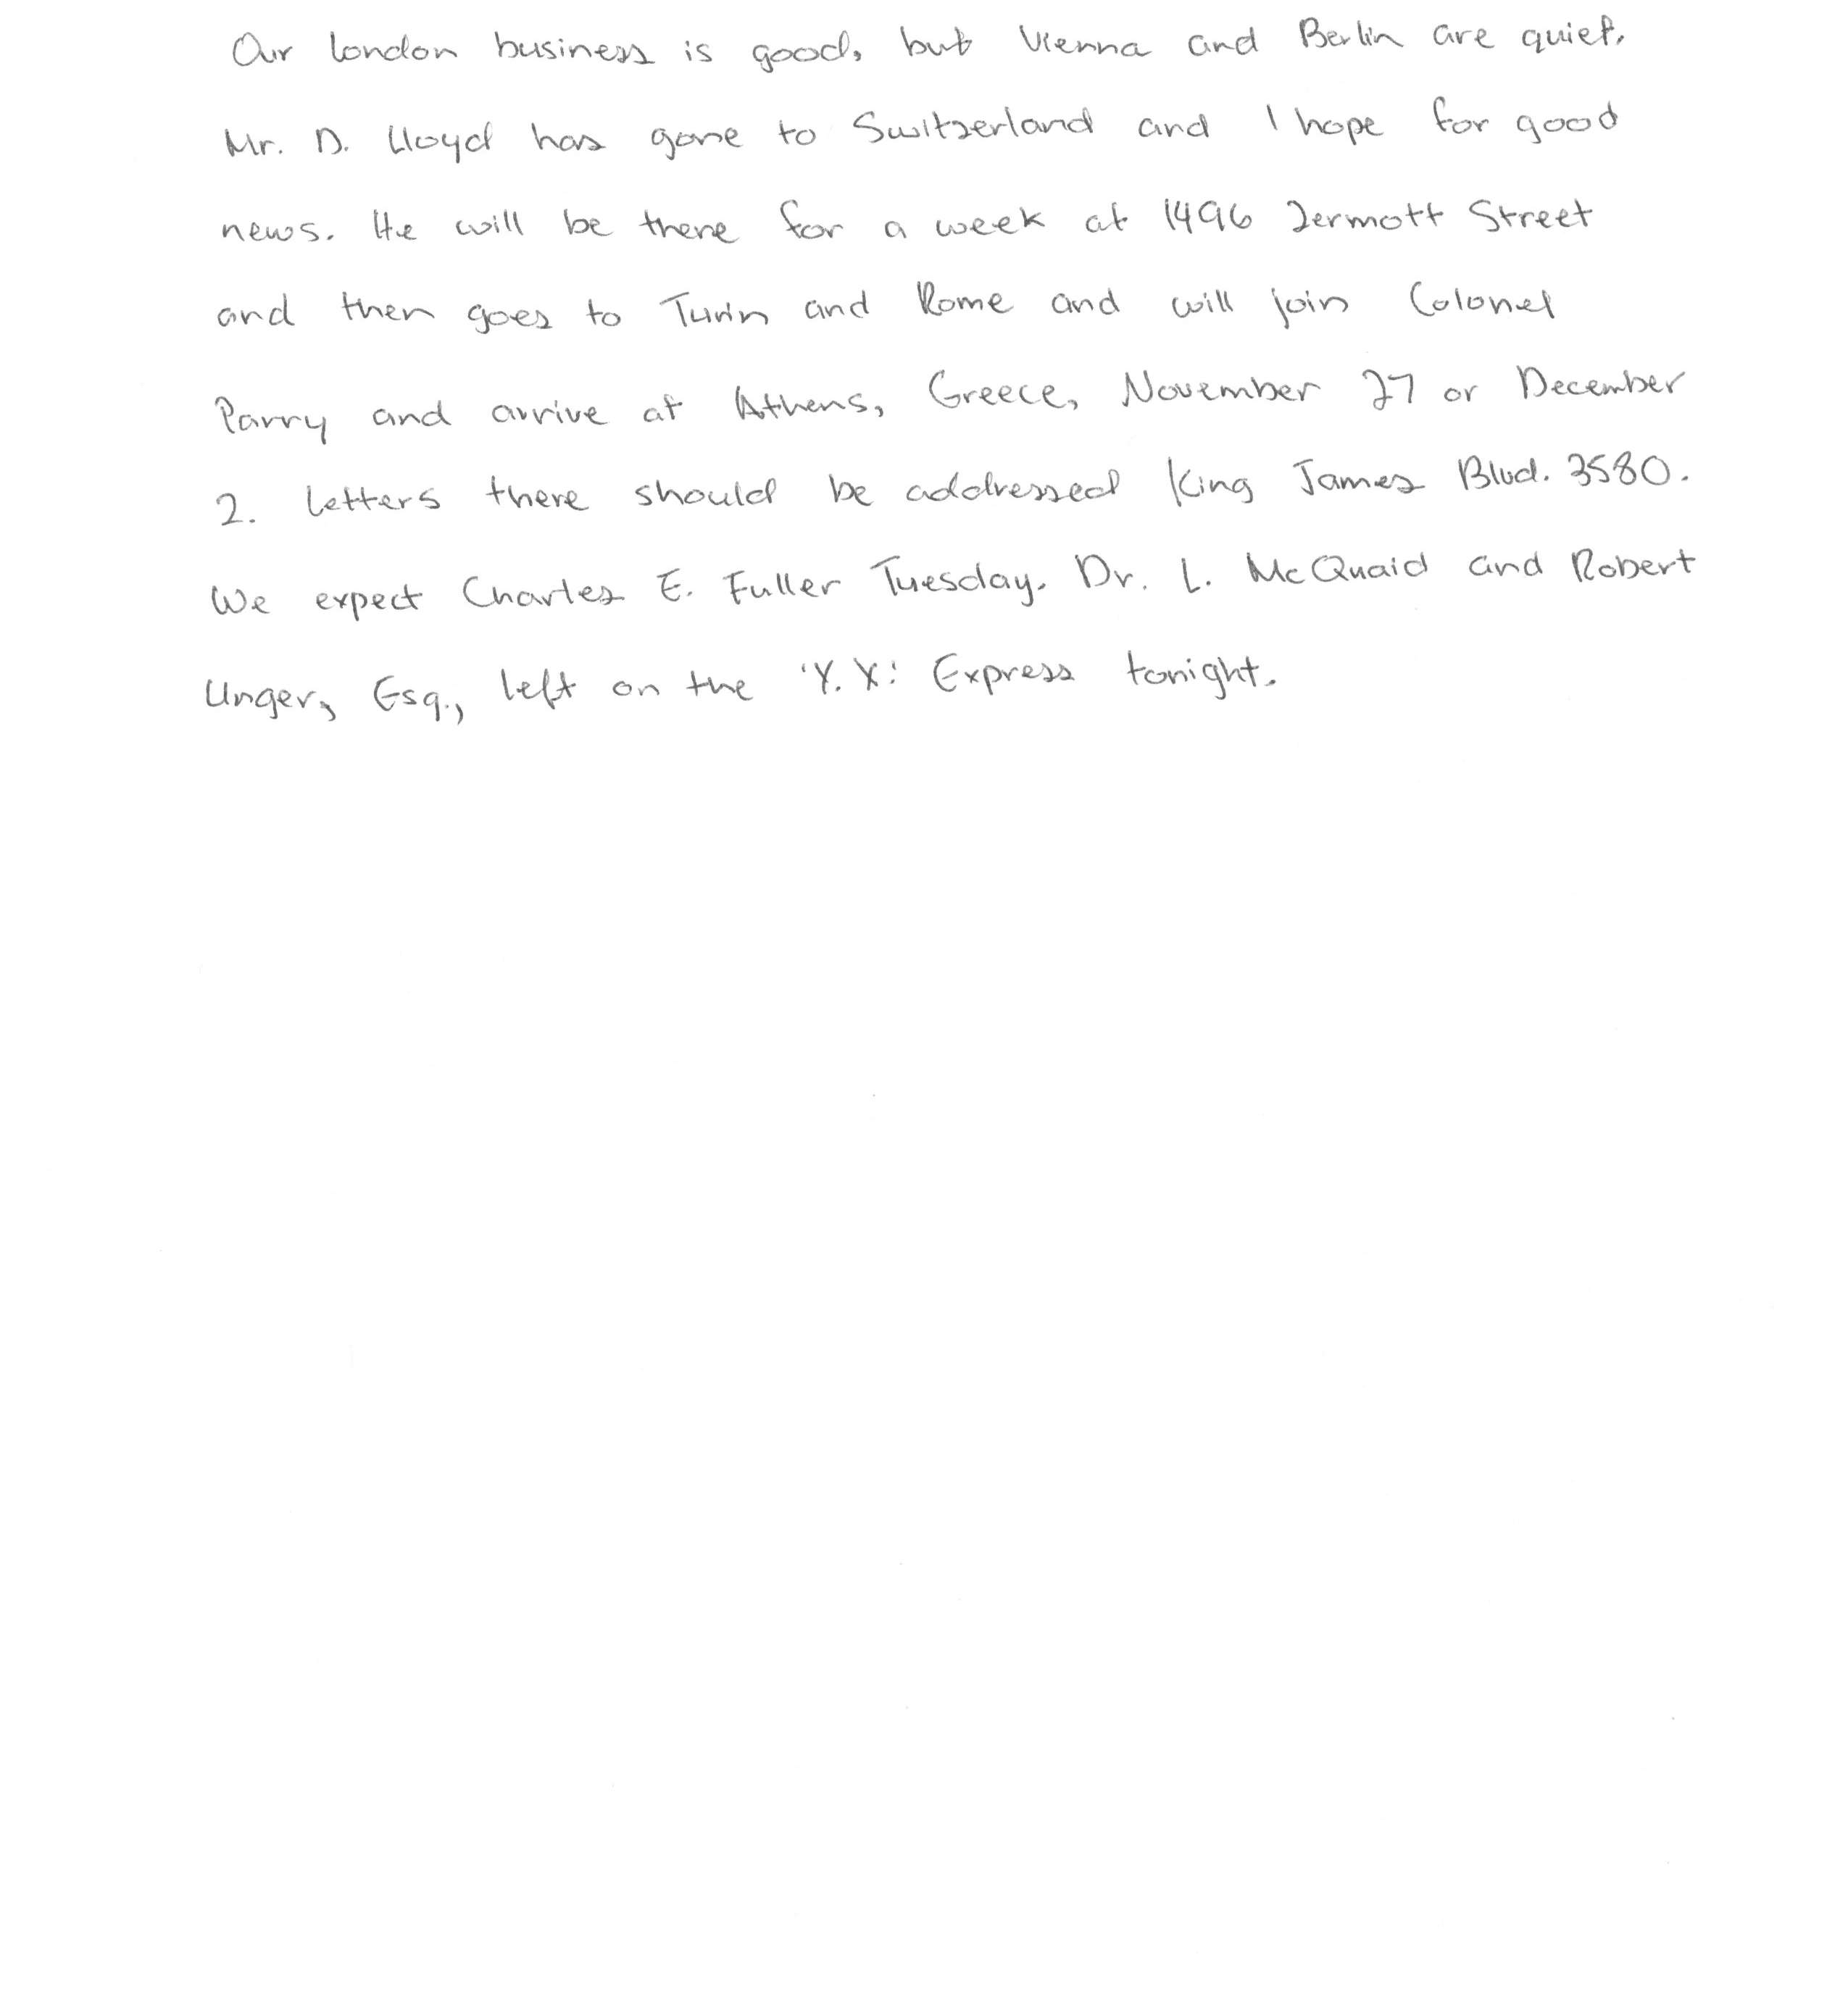 Our London business is good, but Vienna and Berlin are quiet.
Mr. D. Lloyd has gone to Switzerland and I hope for good
news. He will be there for a week at 1496 Zermott Street
and then goes to Turin and Rome and will join Colonel
Parry and arrive at Athens, Greece, November 27 or December
2. Letters there should be addressed King James Blvd. 3580.
We expect Charles E. Fuller Tuesday. Dr. L. McQuaid and Robert
Unger, Esq., left on the 'Y.X.' Express tonight.